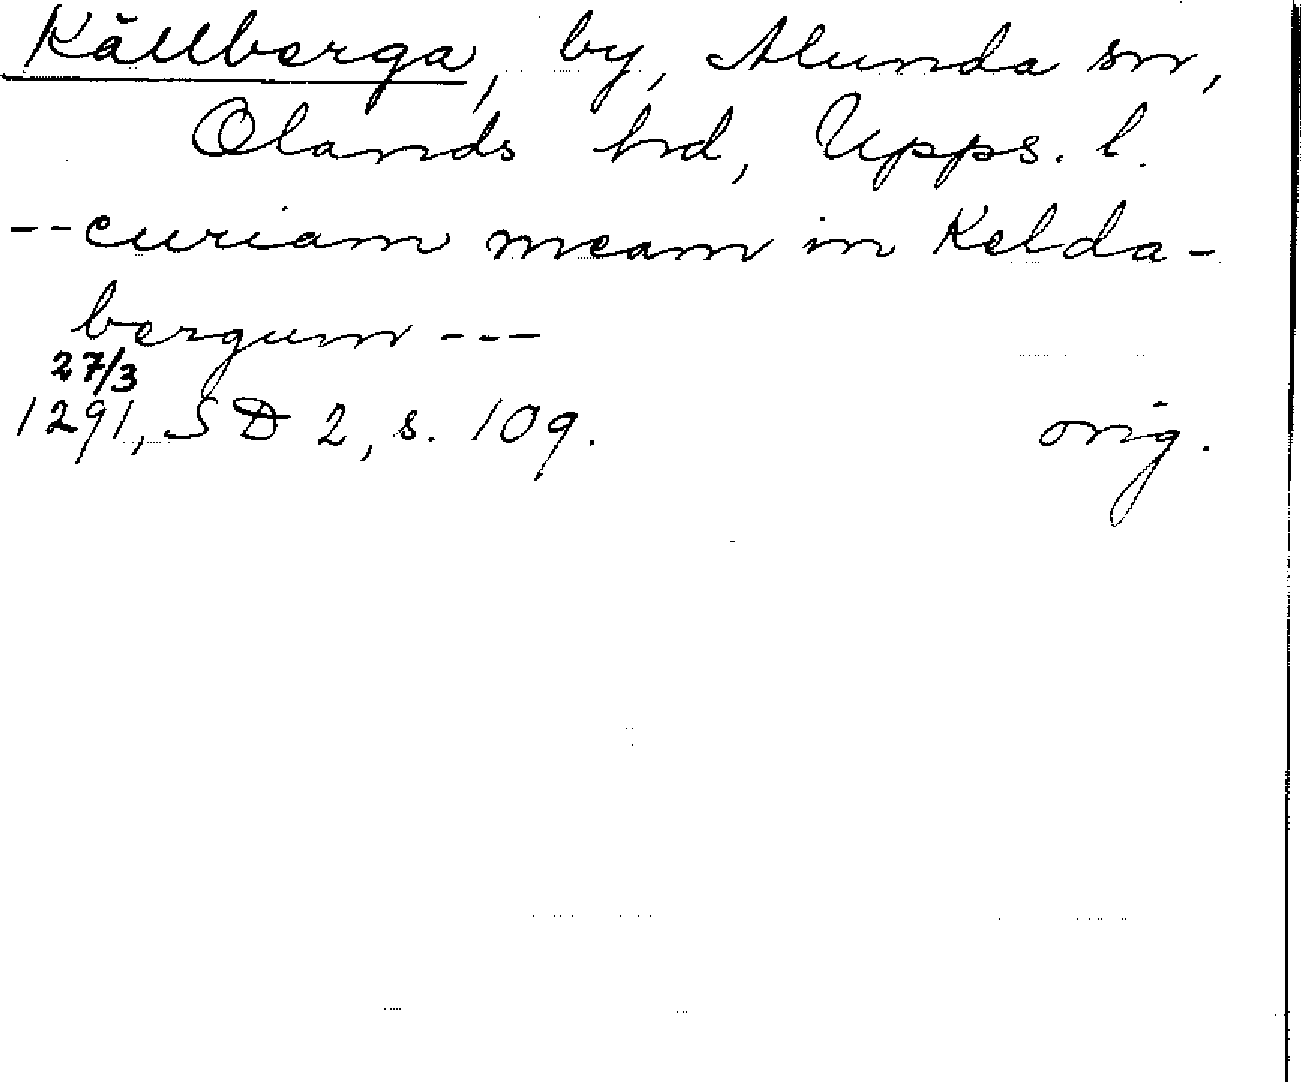 Källberga, by, Alunda sn,
Olands hd, Upps. l.
--curiam meam in Kelda-
bergum ---
27/3
1291, SD 2, s. 109. orig.